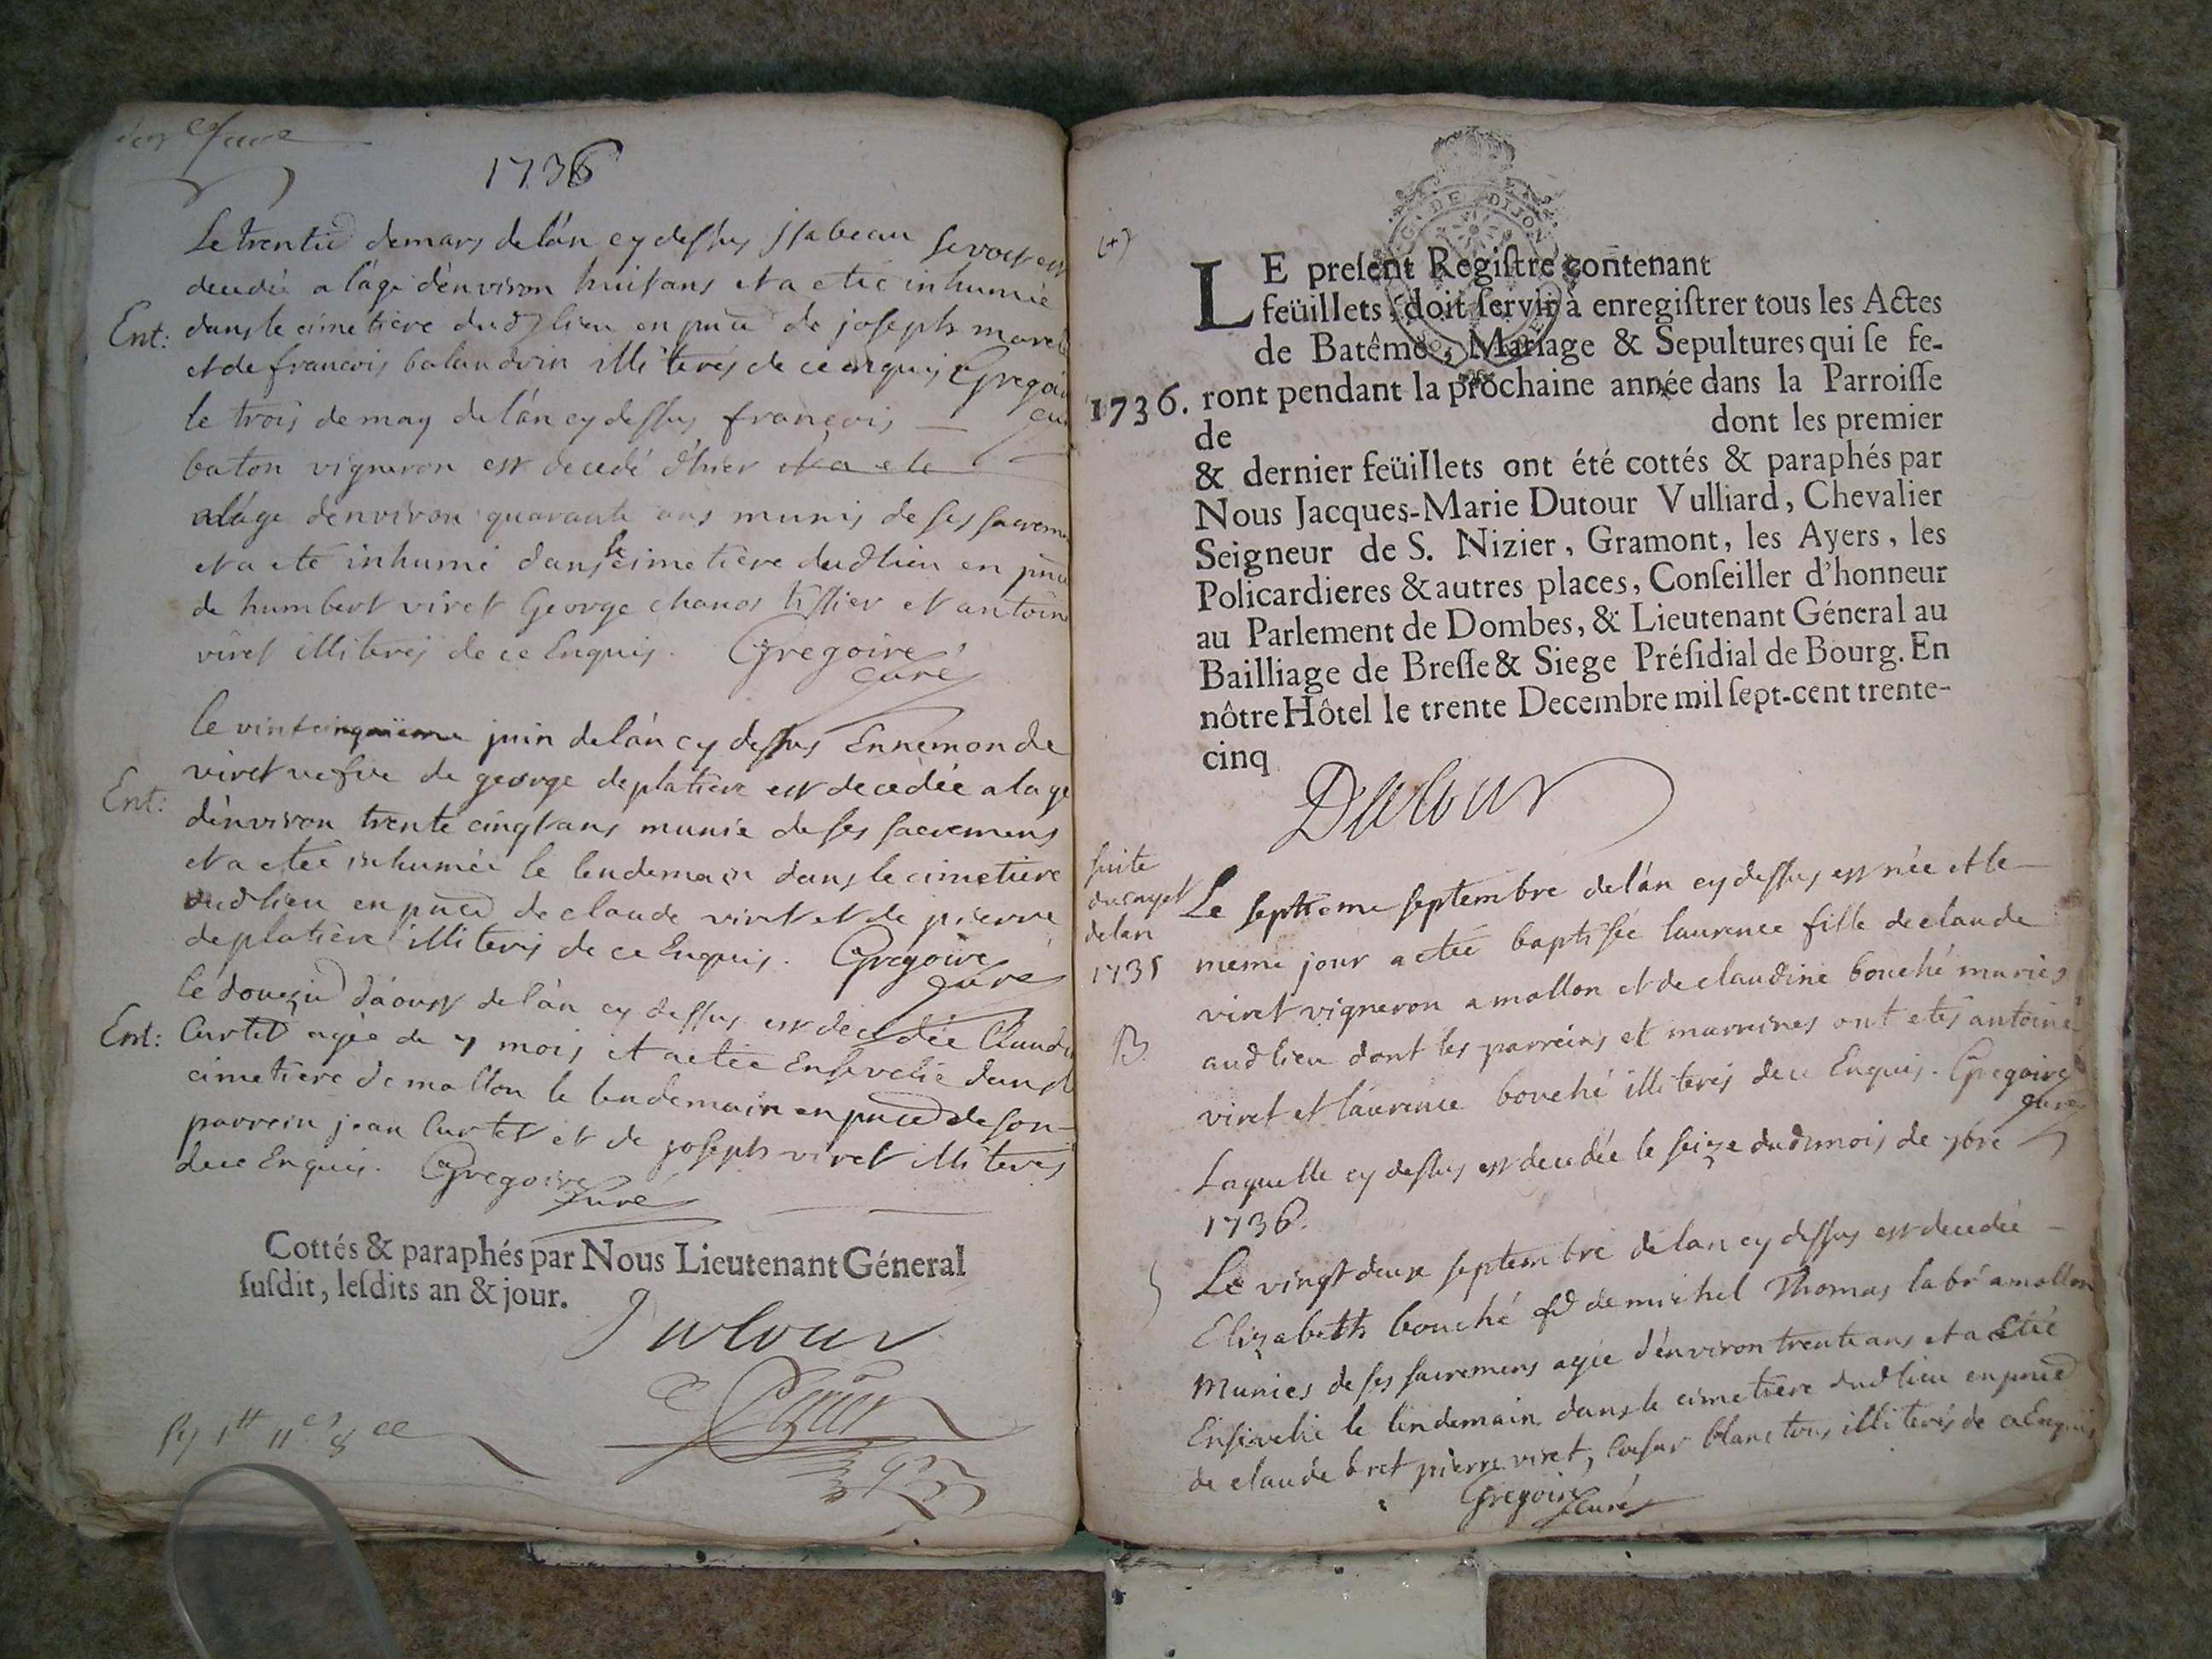 1736
Le trentie de mars de lán cy dessus jsabeau
decedée a láge dénviron huit ans et a etée inhumée
Ent: dans le cimetiere dud lieu en pnce de joseph morel
et de francois balandrin illiterés de ce enquis Gregoire
le trois de may de lán cy dessus françois curé
baton vigneron est decedé d'hier et a ete
a láge dénviron quarante ans munis de ses sacrem
et a eté inhumé dans le cimetière dud lieu en pnce
de humbert viret George chanos tissier et antoine
viret illiterés de ce Enquis. Gregoire
curé
le vintcinquieme juin de lán cy dessus Ennemonde
Ent: viret vefve de george deplatiere est decedée a lage
dénviron trente cinq ans munie de ses sacremens
et a etée inhumée le lendemain dans le cimetiere
dud lieu en pnce de claude viret et de pierre
deplatière illiterés de ce Enquis. Gregoire
curé
le douzie dáoust de lán cy dessus est decedée Claudi
Ent: Curtet agée de 7 mois et a etée Ensevelie dans le
cimetiere de mollon le lendemain en pnce de son
parrein jean Curtet et de joseph viret illiterés
de ce Enquis. Gregoire
Curé
Cottés & paraphés par Nous Lieutenant Géneral
ſuſdit, leſdits an & jour.
Dutour
LE preſent Regiſtre contenant
feüillets, doit ſervir à enregiſtrer tous les Actes
de Batême, Mariage & Sepultures qui ſe fe-
1736. ront pendant la prochaine année dans la Parroiſſe
de dont les premier
& dernier feüillets ont été cottés & paraphés par
Nous Jacques-Marie Dutour Vulliard, Chevalier
Seigneur de S. Nizier, Gramont, les Ayers, les
Policardieres & autres places, Conſeiller d'honneur
au Parlement de Dombes, & Lieutenant Géneral au
Bailliage de Breſſe & Siege Préſidial de Bourg. En
nôtre Hôtel le trente Decembre mil ſept-cent trente-
cinq
Dutour
suite
du cayet
de lan
1735
Le septieme septembre de lán cy dessus est née et le
meme jour a etée baptisée laurence fille de claude
viret vigneron a mollon et de claudine bouché mariés
B. aud lieu dont les parreins et marreines ont etés antoine
viret et laurence bouché illiterés de ce Enquis. Gregoire
curé
Laquelle cy dessus est decedée le seize dud mois de 7bre
1736.
Le vingt deux septembre de lan cy dessus est decedée
Elizabeth bouché de michel Thomas labr a mollon
Munies de ses sacremens agée dénviron trente ans et a Etée
Ensevelie le lendemain dans le cimetière dud lieu en pnce
de claude bret pierre viret, Coesar blanc tous illiterés de ce Enquis
Gregoire
Curé